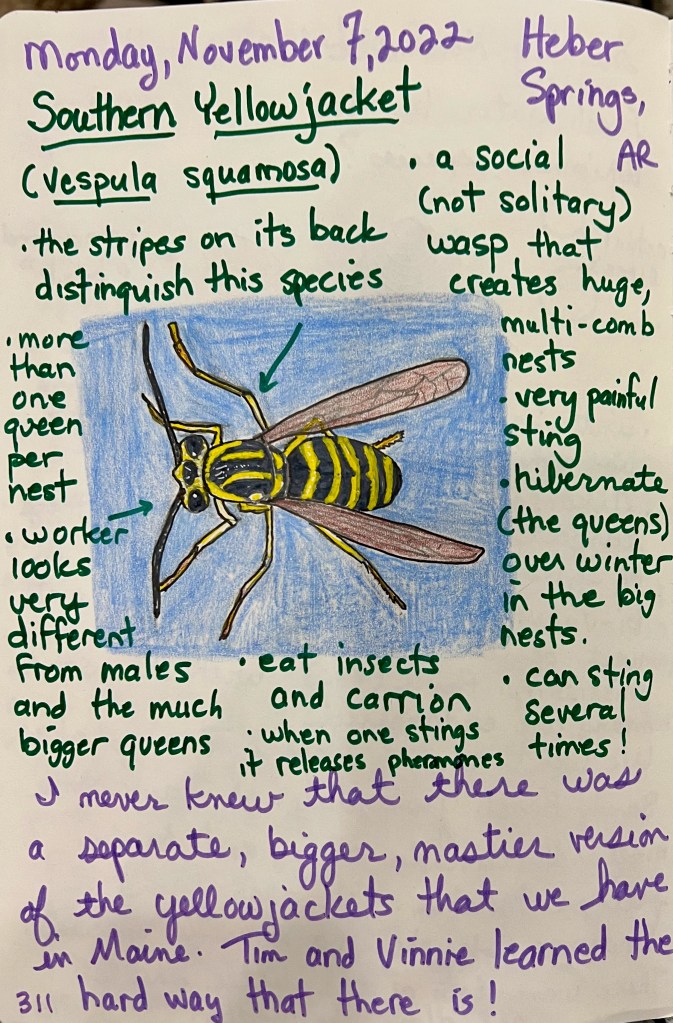 Monday, November 7, 2022
Heber
Springs,
AR
Southern Yellowjacket
(Vespula squamosa)
· the stripes on its back
distinguish this species
· a social
(not solitary)
wasp that
creates huge,
multi-comb
nests
· very painful
sting
· hibernate
(the queens)
over winter
in the big
nests.
· can sting
several
times!
· more
than
one
queen
per
nest
· worker
looks
very
different
from males
and the much
bigger queens
· eat insects
and carrion
· when one stings
it releases pheramones
I never knew that there was
a separate, bigger, nastier version
of the yellowjackets that we have
in Maine. Tim and Vinnie learned the
hard way that there is!
311